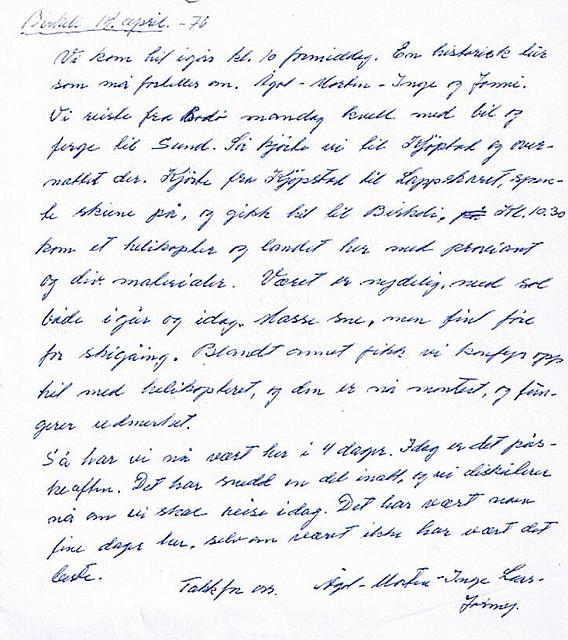 Birkeli 14. april. -76
Vi kom hit igår kl. 10 formiddag. En historisk tur
som må fortelles om. Ågot - Morten - Inge og Jonni.
Vi reiste fra Bodø mandag kveld med bil og
ferge til Sund. Så kjørte vi til Kjøpstad og over-
nattet der. Kjørte fra Kjøpstad til Lappskaret, spen-
te skiene på, og gikk hit til Birkeli, Kl. 10.30
kom et helikopter og landet her med proviant
og div. materialer. Været er nydelig, med sol
både igår og idag. Masse sne, men fint føre
for skigåing. Blandt annet fikk vi komfyr opp
hit med helikopteret, og den er nå montert, og fun-
gerer udmerket.
Så har vi nå vært her i 4 dager. Idag er det pås-
keaften. Det har snødd en del inatt, og vi diskuterer
nå om vi skal reise idag. Det har vært noen
fine dager her, selv om været ikke har vært det
beste.
Takk for oss. Ågot - Morten - Inge Lars-